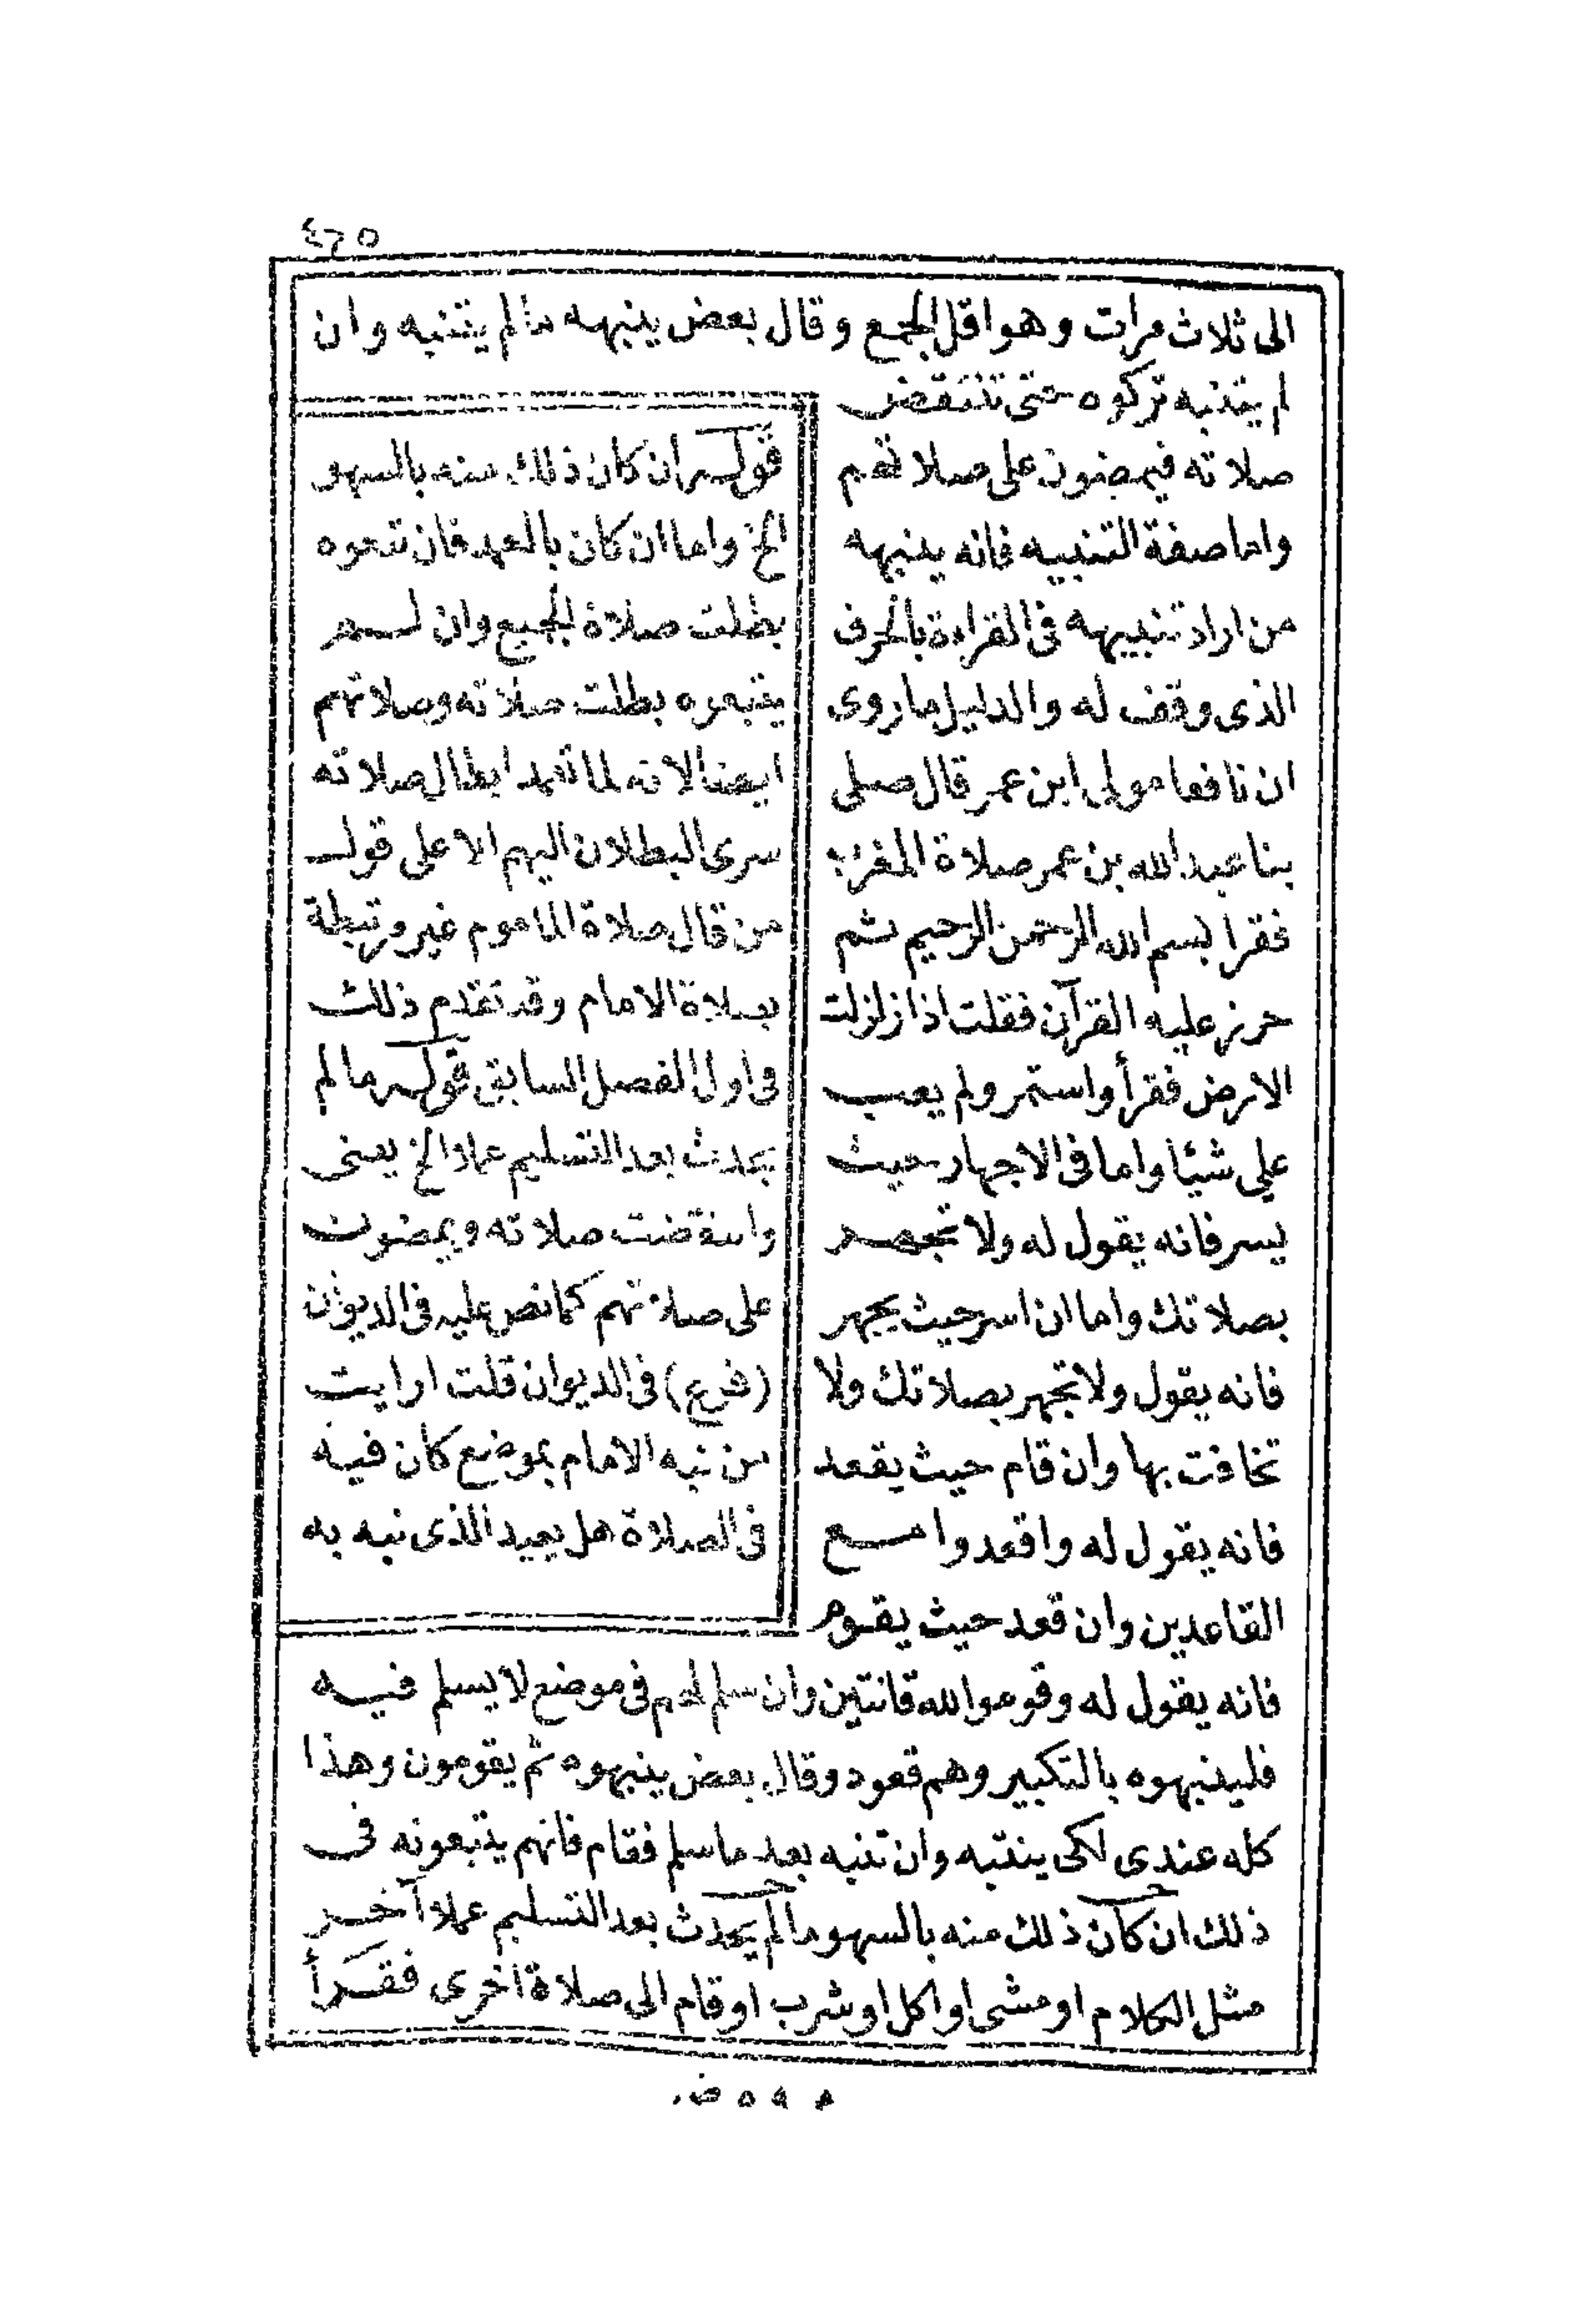 ٤٦٥
الى ثلاث مرات وهو اقل الجمع وقال بعض ينبهه ما لم يتنبه وان
لم يتنبه تركوه حتى تنتقض
صلاته فيمضون على صلاتهم
واما صفة التنبيه فانه ينبهه
من اراد تنبيهه فى القراءة بالحرف
الذى وقف له والدليل ما روى
ان نافعا مولى ابن عمر قال صلى
بنا عبد الله بن عمر صلاة المغرب
فقرا بسم الله الرحمن الرحيم ثم
حرز عليه القرآن فقلت اذا زلزلت
الارض فقرأ واستمر ولم يعب
على شيئا واما فى الاجهار حيث
يسر فانه يقول له ولا تجهر
بصلاتك واما ان اسر حيث يجهر
فانه يقول ولا تجهر بصلاتك ولا
تخافت بها وان قام حيث يقعد
فانه يقول له واقعدوا مع
القاعدين وان قعد حيث يقوم
قوله ان كان ذلك منه بالسهو
الخ واما ان كان بالعمد فان تبعوه
بطلت صلاة الجميع وان لم
يتبعوه بطلت صلاته وصلاتهم
ايضا لانه لما تعمد ابطال صلاته
سرى البطلان اليهم الا على قول
من قال صلاة الماموم غير مرتبطة
بصلاة الامام وقد تقدم ذلك
فى اول الفصل السابق قوله ما لم
يحدث بعد التسليم عملا الخ يعنى
وانتقضت صلاته ويمضون
على صلاتهم كما نص عليه فى الديوان
(فرع) فى الديوان قلت ارايت
من نبه الامام بموضع كان فيه
فى الصلاة هل يعيد الذى نبه به
فانه يقول له وقوموا لله قانتين وان سلم لهم فى موضع لا يسلم فيه
فلينبهوه بالتكبير وهم قعود وقال بعض ينبهوه ثم يقومون وهذا
كله عندى لكى ينتبه وان تنبه بعد ما سلم فقام فانهم يتبعونه فى
ذلك ان كان ذلك منه بالسهو ما لم يحدث بعد التسليم عملا آخر
مثل الكلام او مشى او اكل او شرب او قام الى صلاة اخرى فقرأ